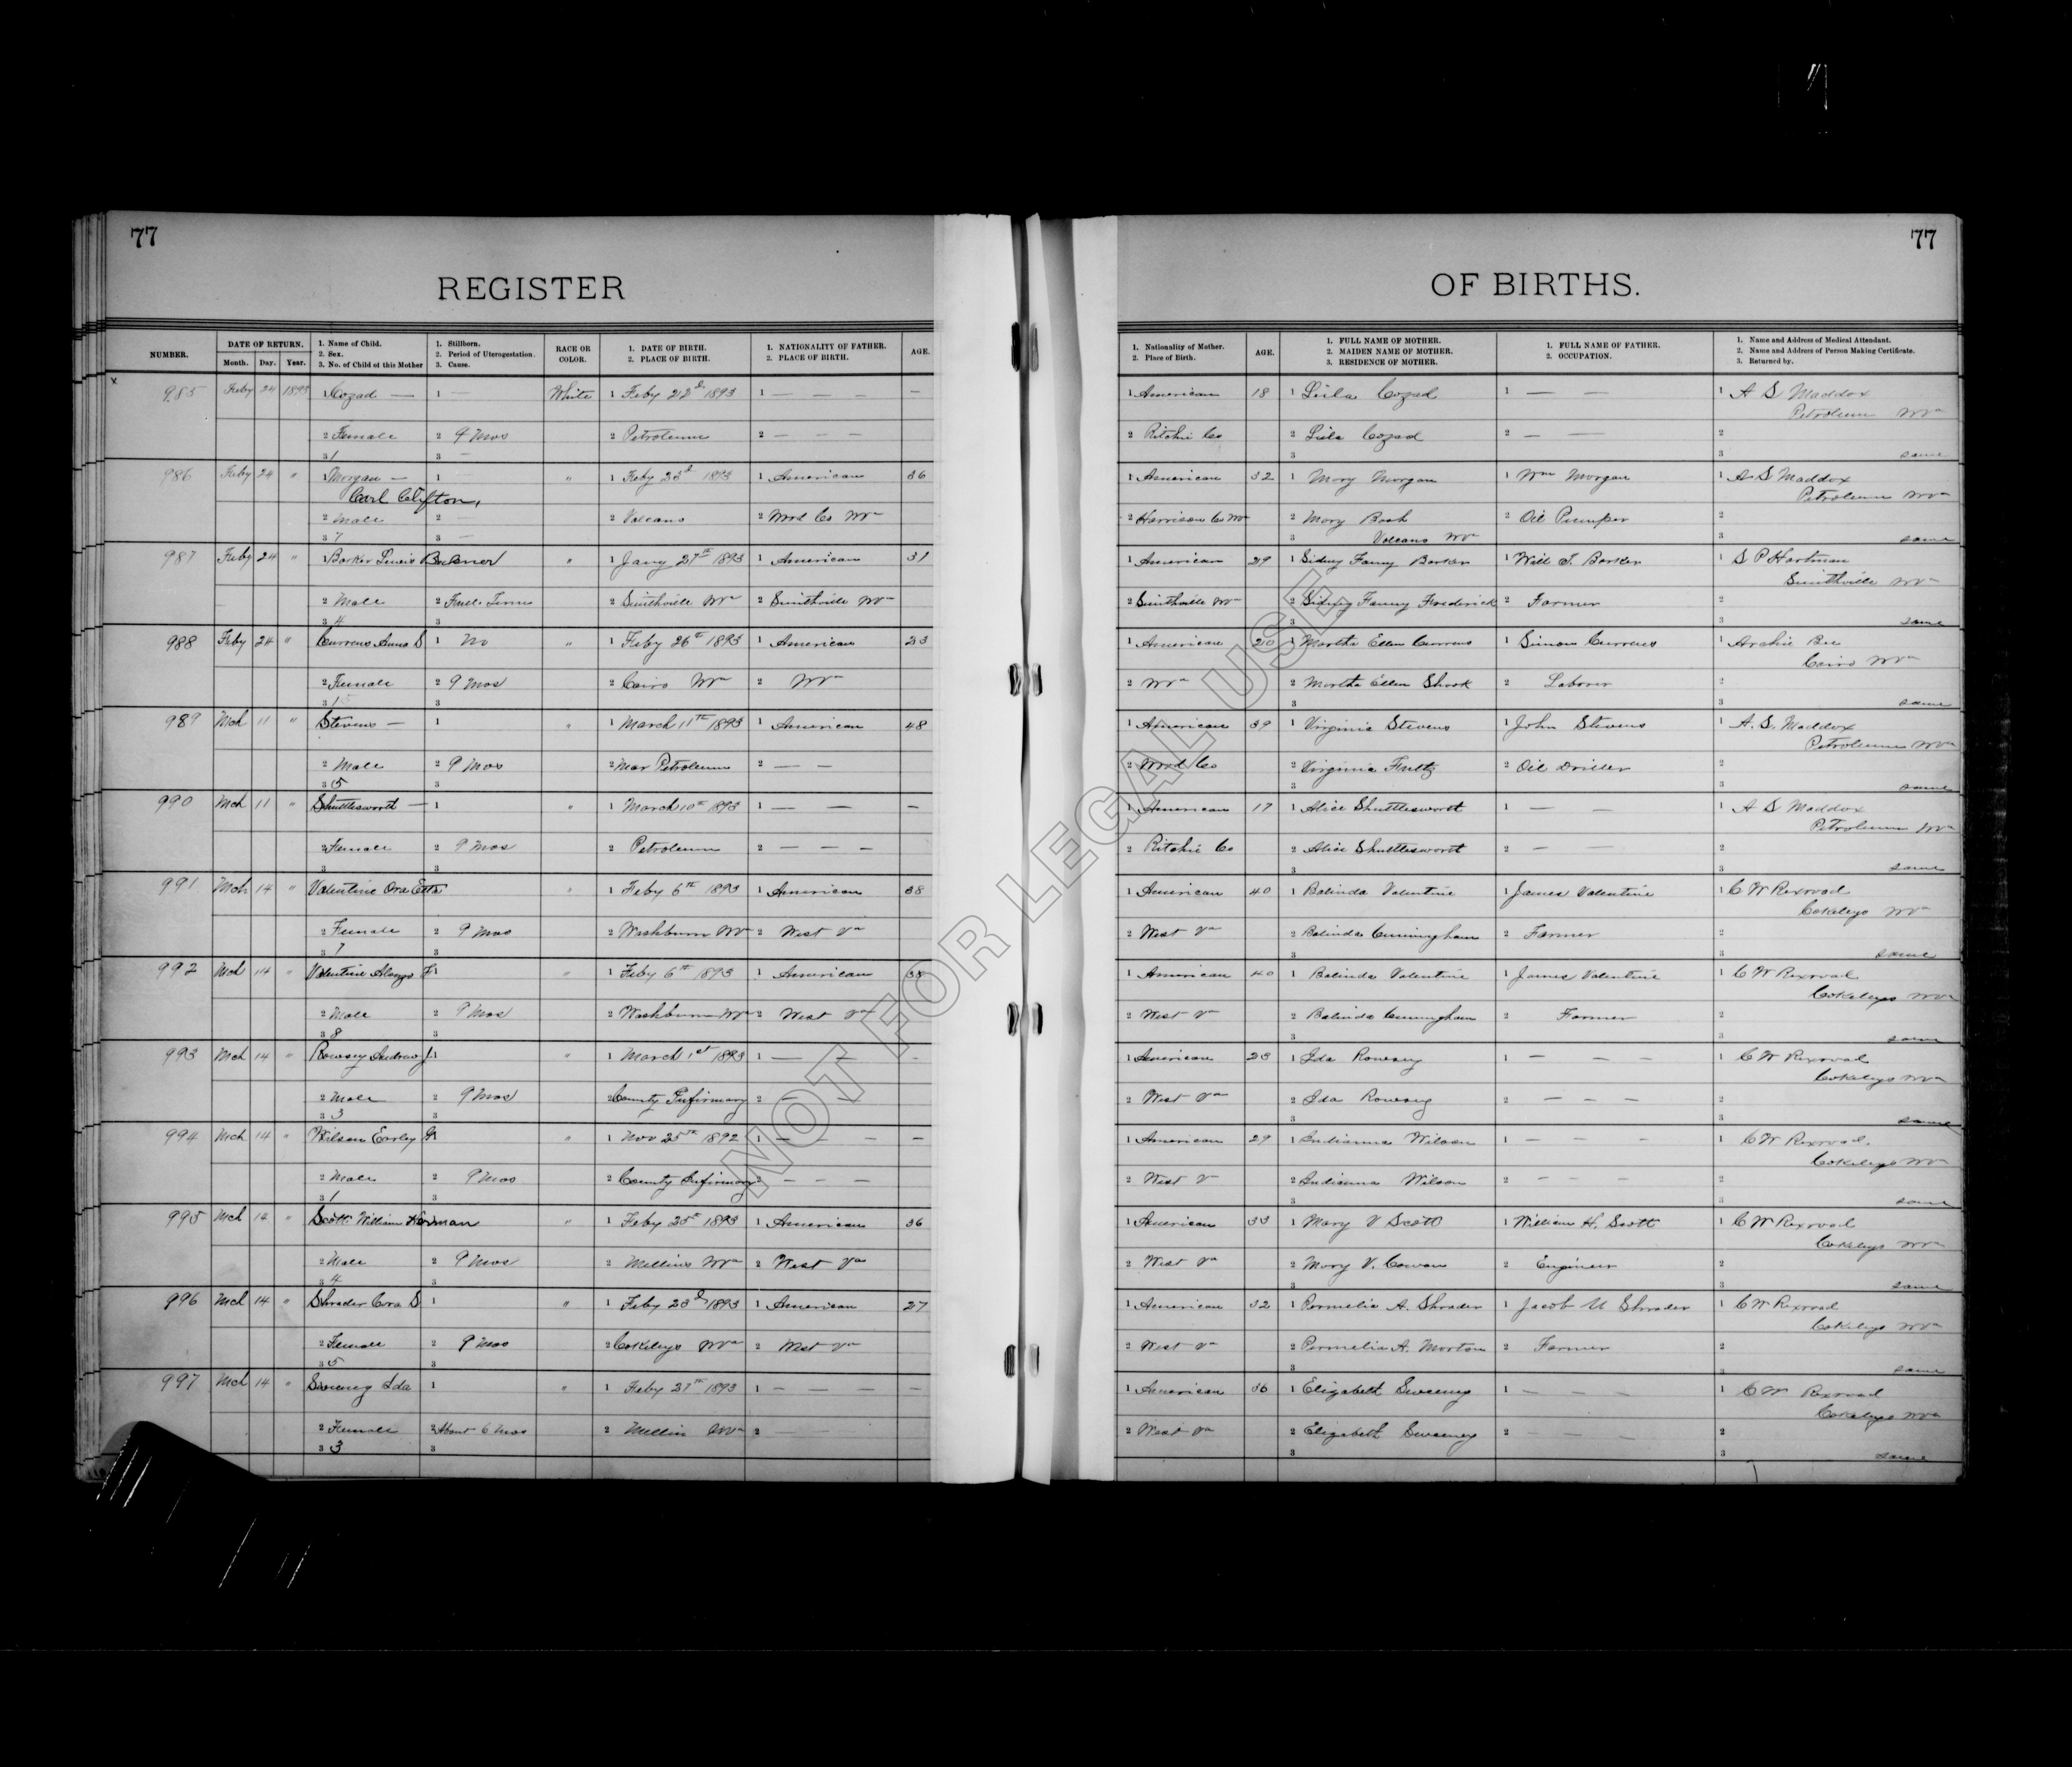 77
77
REGISTER
OF BIRTHS.
NUMBER.
DATE OF RETURN.
Month. Day. Year.
1. Name of Child.
2. Sex.
3. No. of Child of this Mother
1. Stillborn.
2. Period of Uterogestation.
3. Cause.
RACE OR
COLOR.
1. DATE OF BIRTH.
2. PLACE OF BIRTH.
1. NATIONALITY OF FATHER.
2. PLACE OF BIRTH.
AGE.
1. Nationality of Mother.
2. Place of Birth.
AGE.
1. FULL NAME OF MOTHER.
2. MAIDEN NAME OF MOTHER.
3. RESIDENCE OF MOTHER.
1. FULL NAME OF FATHER.
2. OCCUPATION.
1. Name and Address of Medical Attendant.
2. Name and Address of Person Making Certificate.
3. Returned by.
985 Feby 24 1893 1 Cozad — 1 — White 1 Feby 22d 1893 1 — — — — 1 American 18 1 Lula Cozad 1 — — 1 A S Maddox
Petroleum Wva
2 Female 2 9 Mos 2 Petroleum 2 — — — 2 Ritchie Co 2 Lula Cozad 2 — — 2
3 1 3 — 3 3 same
986 Feby 24 " 1 Morgan — 1 — " 1 Feby 23d 1893 1 American 36 1 American 32 1 Mary Morgan 1 Wm Morgan 1 A S Maddox
Carl Clifton, Petroleum Wva
2 Male 2 — 2 Volcano 2 Wood Co Wva 2 Harrison Co Wva 2 Mary Bosh 2 Oil Pumper 2
3 7 3 — 3 Volcano Wva 3 same
987 Feby 24 " 1 Barker Lewis " 1 Jany 27th 1893 1 American 31 1 American 29 1 Sidney Fanny Barker 1 Will T. Barker 1 S P Hartman
Smithville Wva
2 Male 2 Full Term 2 Smithville Wva 2 Smithville Wva 2 Smithville Wva 2 Sidney Fanny Frederick 2 Farmer 2
3 4 3 same
988 Feby 24 " Currens Anna S 1 No " 1 Feby 26th 1893 1 American 23 1 American 20 1 Martha Ellen Currens 1 Simon Currens 1 Archie Bee
Cairo Wva
2 Female 2 9 Mos 2 Cairo Wva 2 Wva 2 Wva 2 Martha Ellen Shook 2 Laborer 2
3 1 3 3 3 same
989 Mch 11 " Stevens — 1 " 1 March 11th 1893 1 American 48 1 American 39 1 Virginia Stevens 1 John Stevens 1 A. S. Maddox
Petroleum Wva
2 Male 2 9 Mos 2 Near Petroleum 2 — — 2 Wood Co 2 Virginia Fultz 2 Oil Driller 2
3 5 3 3 3 same
990 Mch 11 " Shuttlesworth — 1 " 1 March 10th 1893 1 — — — 1 American 17 1 Alice Shuttlesworth 1 — — 1 A S Maddox
Petroleum Wva
2 Female 2 9 Mos 2 Petroleum 2 — — — 2 Ritchie Co 2 Alice Shuttlesworth 2 — — 2
3 3 3 3 same
991 Mch 14 " Valentine Ora Etta " 1 Feby 6th 1893 1 American 38 1 American 40 1 Balinda Valentine 1 James Valentine 1 C W Rexroad
Cokeleys Wva
2 Female 2 9 Mos 2 Washburn Wva 2 West Va 2 West Va 2 Balinda Cunningham 2 Farmer 2
3 7 3 3 3 same
992 Mch 14 " Valentine Alonzo F 1 " 1 Feby 6th 1893 1 American 38 1 American 40 1 Balinda Valentine 1 James Valentine 1 C W Rexroad
Cokeleys Wva
2 Male 2 9 Mos 2 Washburn Wva 2 West Va 2 West Va 2 Balinda Cunningham 2 Farmer 2
3 8 3 3 3 same
993 Mch 14 " Rowsey Andrew J. 1 " 1 March 1st 1893 1 — — - 1 American 23 1 Ida Rowsey 1 — — — 1 C W Rexroad
Cokeleys Wva
2 Male 2 9 Mos 2 County Infirmary 2 — — 2 West Va 2 Ida Rowsey 2 — — — 2
3 3 3 3 3 same
994 Mch 14 " Wilson Earley G 1 " 1 Nov 25th 1892 1 — — — — 1 American 29 1 Indianna Wilson 1 — — — 1 C W Rexroad.
Cokeleys Wva
2 Male 2 9 Mos 2 County Infirmary 2 — — — 2 West Va 2 Indianna Wilson 2 — — — 2
3 1 3 3 3 same
995 Mch 14 " Scott William Herman " 1 Feby 25th 1893 1 American 36 1 American 33 1 Mary V Scott 1 William H. Scott 1 C W Rexroad
Cokeleys Wva
2 Male 2 9 Mos 2 Mellins Wva 2 West Va 2 West Va 2 Mary V. Cowan 2 Engineer 2
3 4 3 3 3 same
996 Mch 14 " Shrader Cora S 1 " 1 Feby 23d 1893 1 American 27 1 American 32 1 Permelia A. Shrader 1 Jacob M Shrader 1 C W Rexroad
Cokeleys Wva
2 Female 2 9 Mos 2 Cokeleys Wva 2 West Va 2 West Va 2 Permelia A. Morton 2 Farmer 2
3 5 3 3 3 same
997 Mch 14 " Sweeney Ida 1 " 1 Feby 27th 1893 1 — — — — 1 American 36 1 Elizabeth Sweeney 1 — — — 1 C W Rexroad
Cokeleys Wva
2 Female 2 About 6 Mos 2 Mellin Wva 2 — — 2 West Va 2 Elizabeth Sweeney 2 — — — 2
3 3 3 3 3 same
NOT FOR LEGAL USE